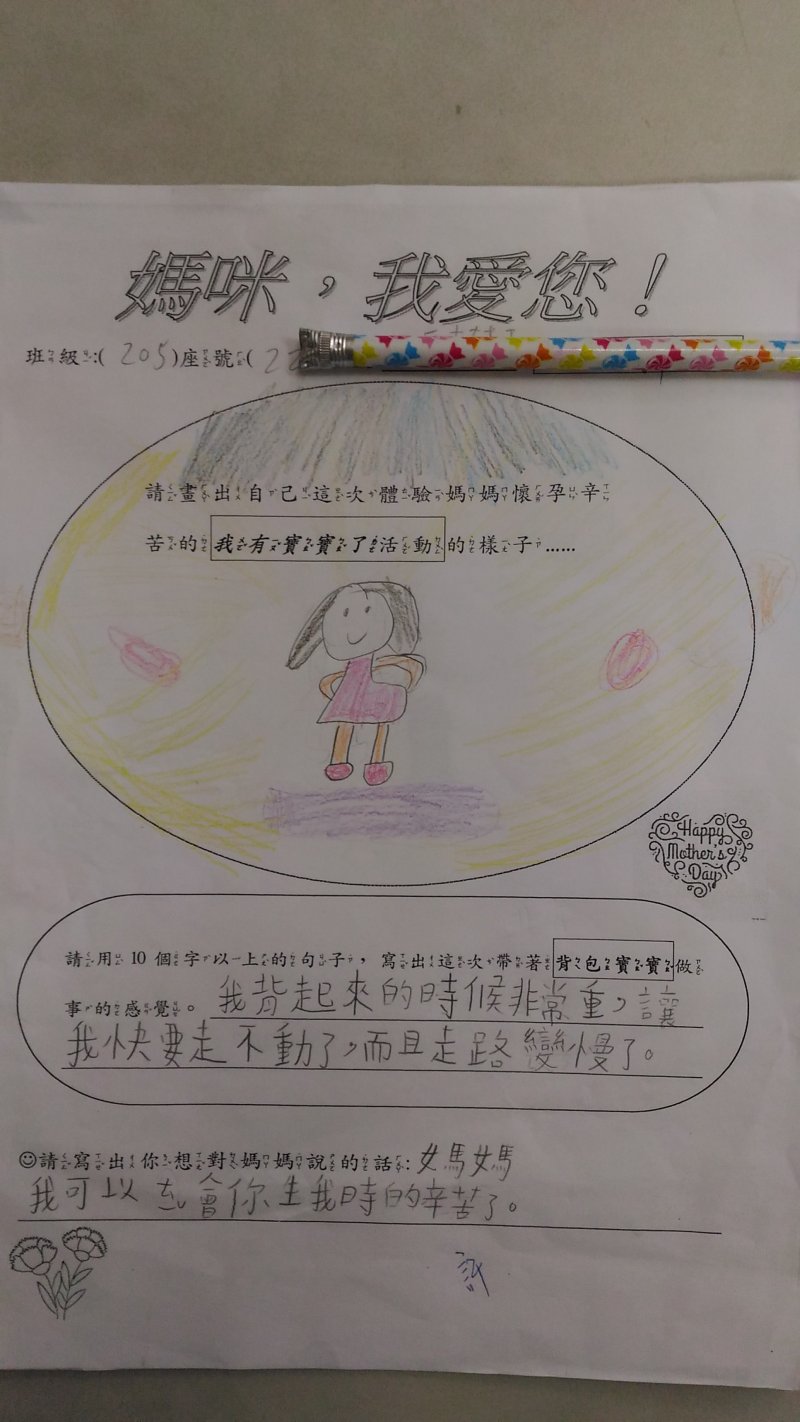 媽咪，我愛您！
班級:( 205 )座號( 22
請畫出自己這次體驗媽媽懷孕辛
苦的我有寶寶了活動的樣子……
Happy
Mother's
Day
請用 10 個字以上的句子，寫出這次帶著背包寶寶做
事的感覺。我背起來的時候非常重，讓
我快要走不動了，而且走路變慢了。
☺請寫出你想對媽媽說的話:媽媽
我可以ㄊㄧˇ會你生我時的辛苦了。